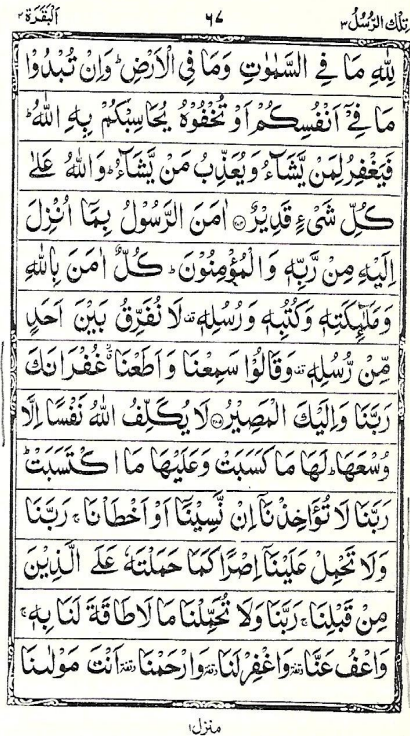 تِلْكَ الرُّسُلُ ٣ ٦٧ اَلْبَقَرَة ٢
لِلّٰهِ مَا فِي السَّمٰوٰتِ وَمَا فِي الْاَرْضِ ؕ وَاِنْ تُبْدُوْا
مَا فِيْۤ اَنْفُسِكُمْ اَوْ تُخْفُوْهُ يُحَاسِبْكُمْ بِهِ اللّٰهُ ؕ
فَيَغْفِرُ لِمَنْ يَّشَآءُ وَيُعَذِّبُ مَنْ يَّشَآءُ ؕ وَاللّٰهُ عَلٰى
كُلِّ شَيْءٍ قَدِيْرٌ ﴿۲۸۴﴾ اٰمَنَ الرَّسُوْلُ بِمَاۤ اُنْزِلَ
اِلَيْهِ مِنْ رَّبِّهٖ وَالْمُؤْمِنُوْنَ ؕ كُلٌّ اٰمَنَ بِاللّٰهِ
وَمَلٰٓئِكَتِهٖ وَكُتُبِهٖ وَرُسُلِهٖ قف لَا نُفَرِّقُ بَيْنَ اَحَدٍ
مِّنْ رُّسُلِهٖ قف وَقَالُوْا سَمِعْنَا وَاَطَعْنَا غُفْرَانَكَ
رَبَّنَا وَاِلَيْكَ الْمَصِيْرُ ﴿۲۸۵﴾ لَا يُكَلِّفُ اللّٰهُ نَفْسًا اِلَّا
وُسْعَهَا ؕ لَهَا مَا كَسَبَتْ وَعَلَيْهَا مَا اكْتَسَبَتْ ؕ
رَبَّنَا لَا تُؤَاخِذْنَاۤ اِنْ نَّسِيْنَاۤ اَوْ اَخْطَاْنَا ۚ رَبَّنَا
وَلَا تَحْمِلْ عَلَيْنَاۤ اِصْرًا كَمَا حَمَلْتَهٗ عَلَى الَّذِيْنَ
مِنْ قَبْلِنَا ۚ رَبَّنَا وَلَا تُحَمِّلْنَا مَا لَا طَاقَةَ لَنَا بِهٖ ۚ
وَاعْفُ عَنَّا وقفة وَاغْفِرْ لَنَا وقفة وَارْحَمْنَا وقفة اَنْتَ مَوْلٰىنَا
منزل ۱